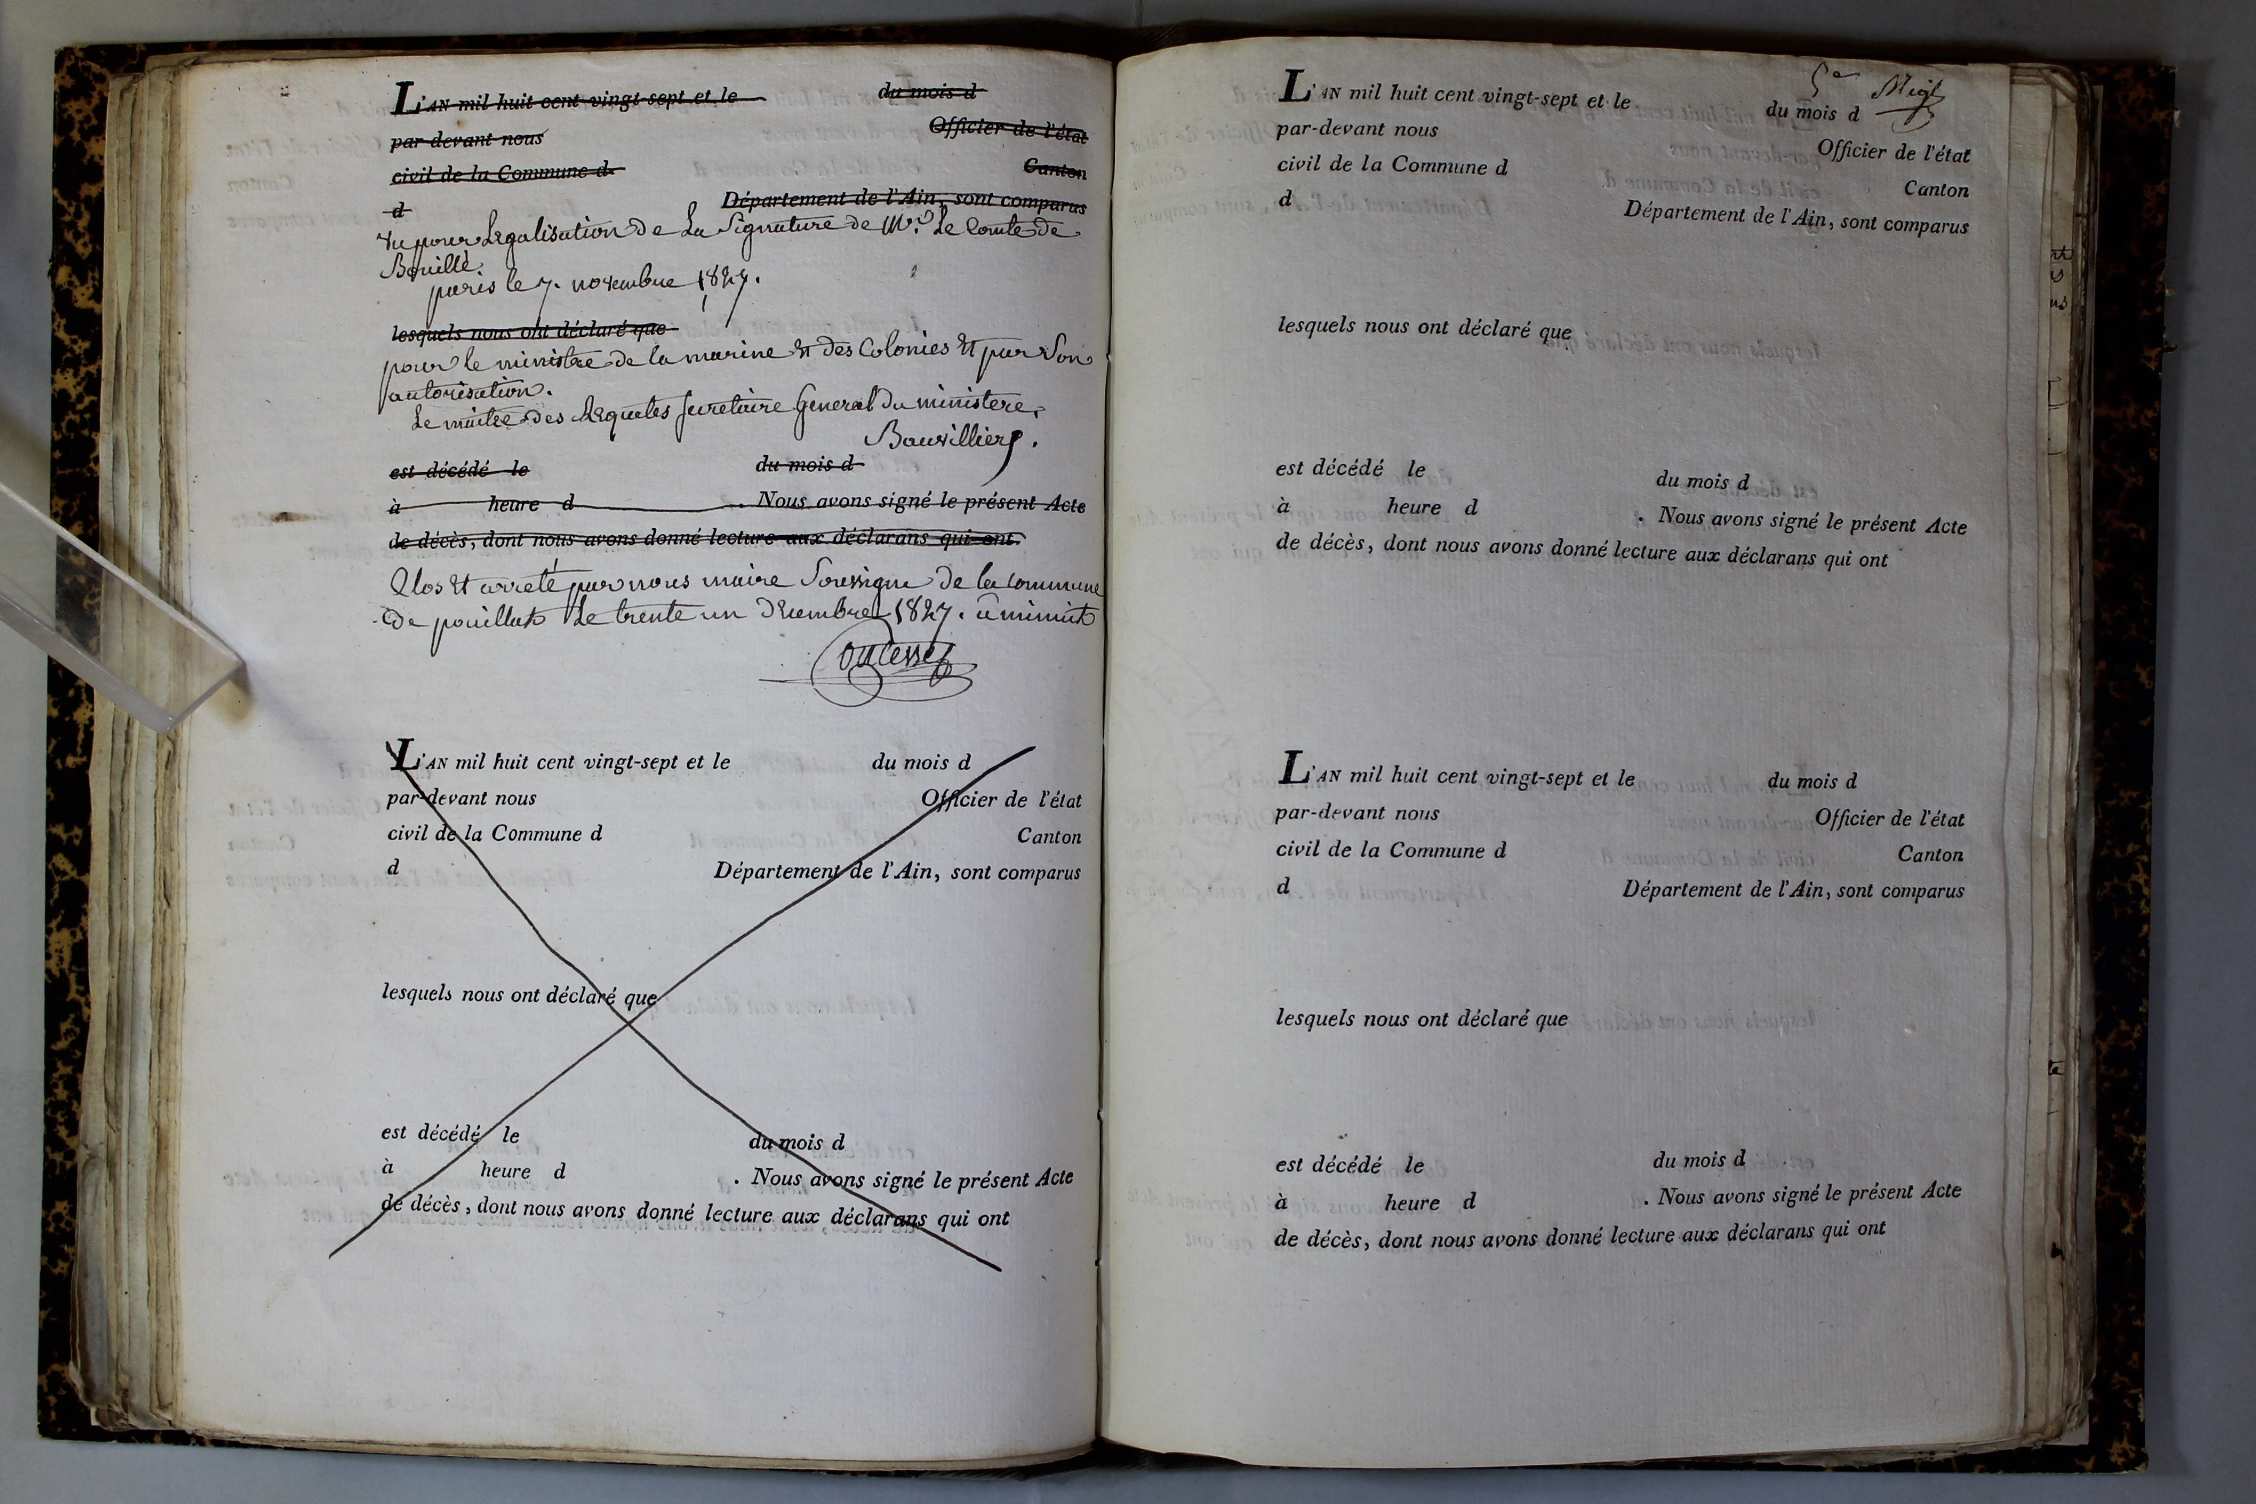 L'AN mil huit cent vingt-sept et le du mois d
par-devant nous Officier de l'état
civil de la Commune d Canton
d Département de l'Ain, sont comparus
Vu pour Legalisation de La Signature de Mr. Le Comte de
Bouillé
paris le 7. novembre 1827.
lesquels nous ont déclaré que
pour le ministre de la marine et des Colonies et par Son
autorisation.
Le maitre des Requetes Secretaire General du ministere,
Boursilliers.
est décédé le du mois d
à heure d . Nous avons signé le présent Acte
de décès, dont nous avons donné lecture aux déclarans qui ont
Clos et arreté par nous maire Soussigné de la commune
de pouillat Le trente un Décembre 1827. à minuit
L'AN mil huit cent vingt-sept et le du mois d
par-devant nous Officier de l'état
civil de la Commune d Canton
d Département de l'Ain, sont comparus
lesquels nous ont déclaré que
est décédé le du mois d
à heure d . Nous avons signé le présent Acte
de décès, dont nous avons donné lecture aux déclarans qui ont
L'AN mil huit cent vingt-sept et le du mois d
par-devant nous Officier de l'état
civil de la Commune d Canton
d Département de l'Ain, sont comparus
lesquels nous ont déclaré que
est décédé le du mois d
à heure d . Nous avons signé le présent Acte
de décès, dont nous avons donné lecture aux déclarans qui ont
L'AN mil huit cent vingt-sept et le du mois d
par-devant nous Officier de l'état
civil de la Commune d Canton
d Département de l'Ain, sont comparus
lesquels nous ont déclaré que
est décédé le du mois d
à heure d . Nous avons signé le présent Acte
de décès, dont nous avons donné lecture aux déclarans qui ont